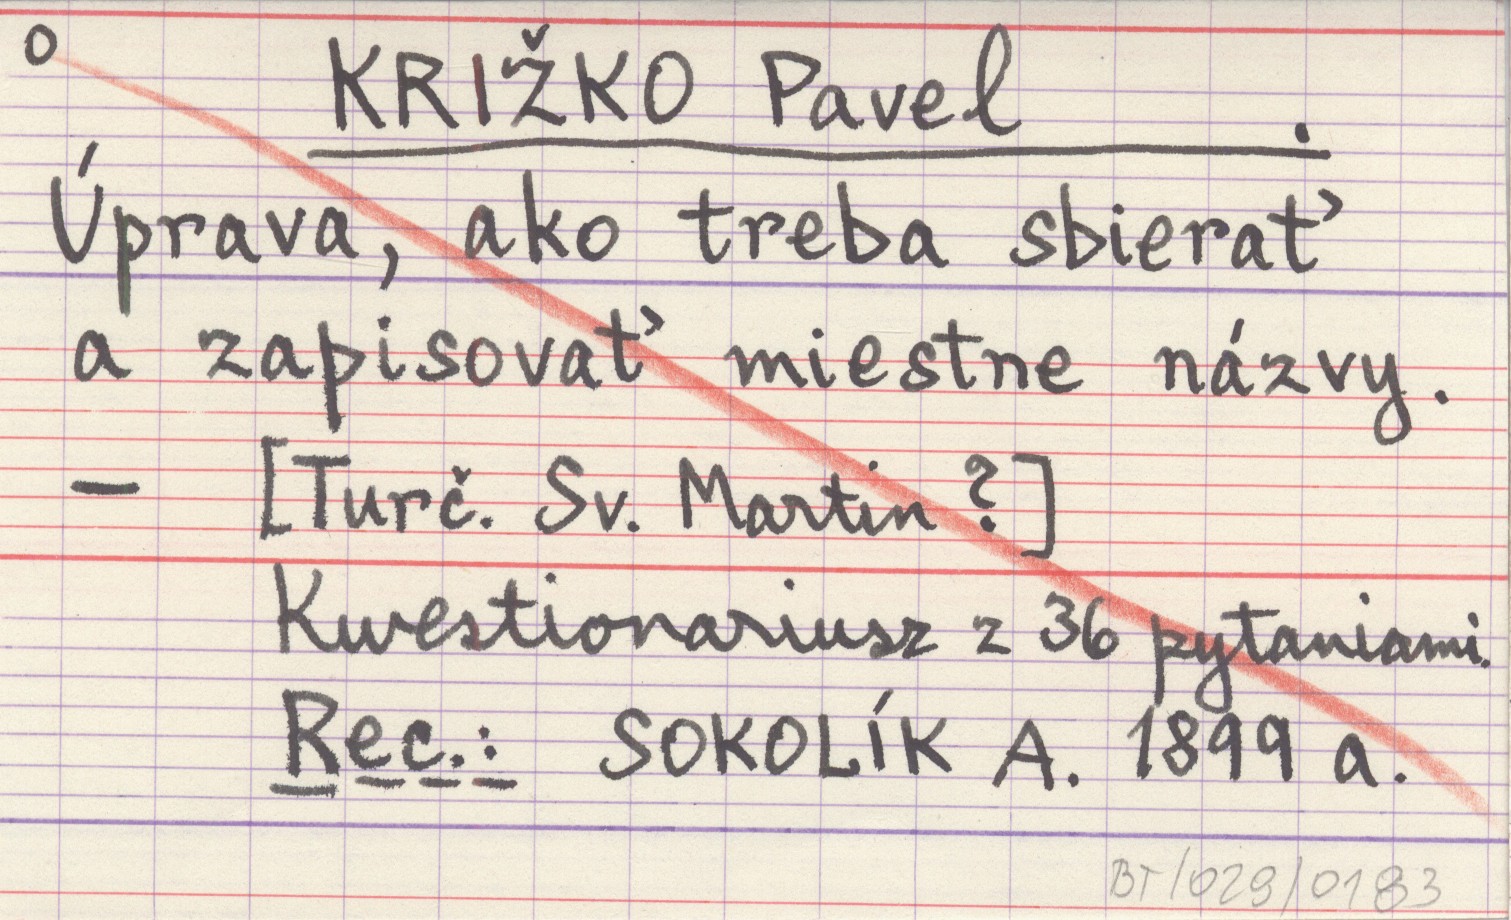 o KRIŽKO Pavel .
Úprava, ako treba sbierať
a zapisovať miestne názvy.
— [Turč. Sv. Martin ?]
Kwestionariusz z 36 pytaniami.
Rec.: SOKOLÍK A. 1899 a.
BT/029/0183